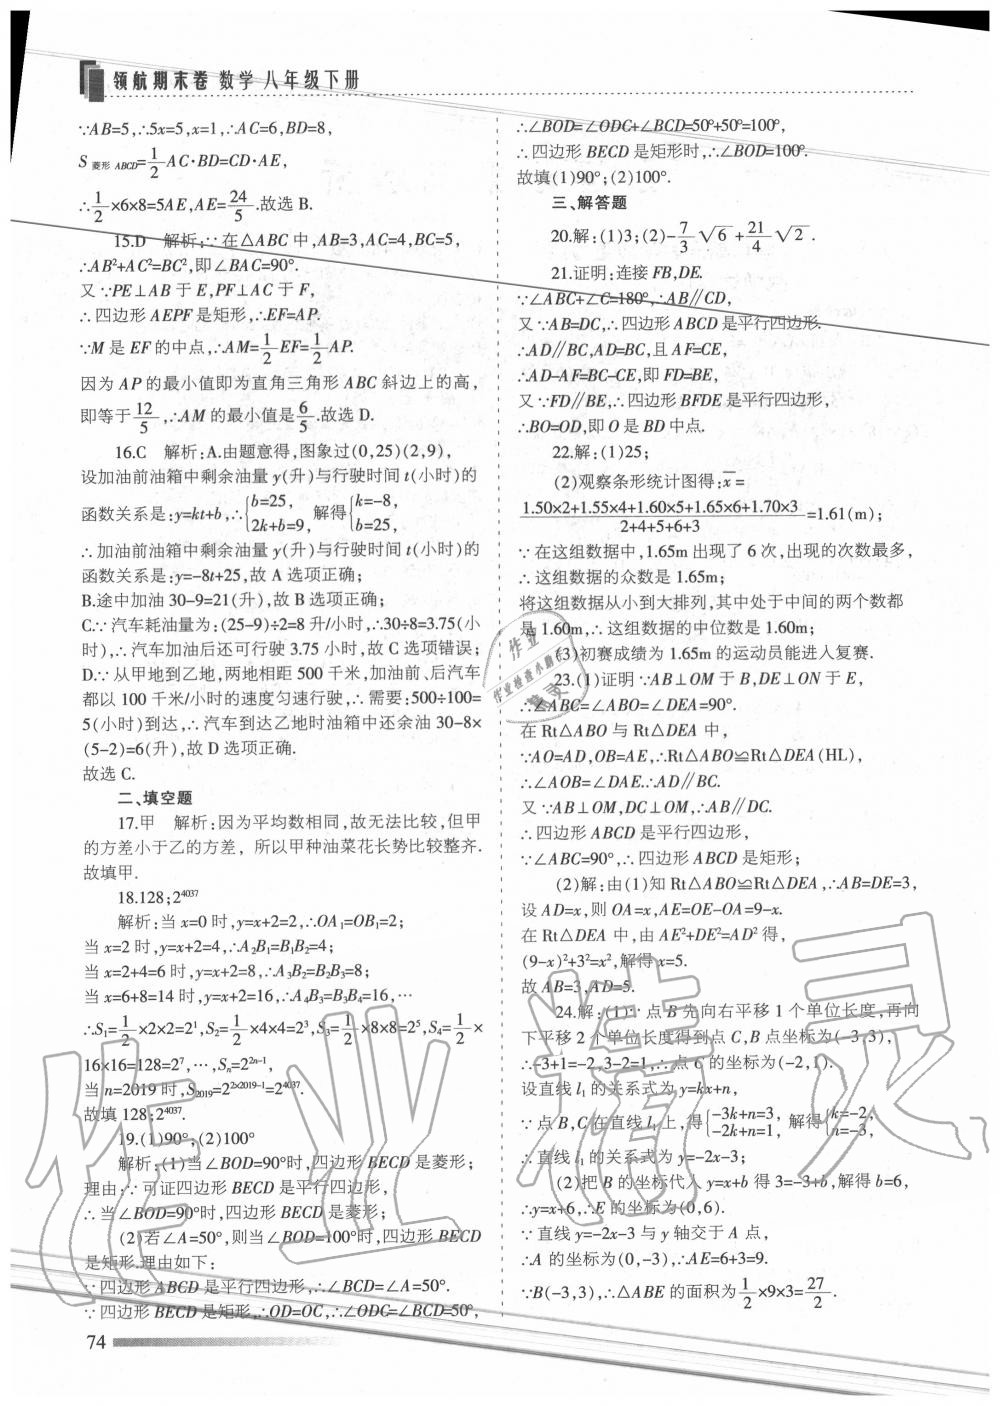 领航期末卷 数学 八年级下册
∵AB=5,∴5x=5,x=1,∴AC=6,BD=8,
S菱形ABCD=1/2AC·BD=CD·AE,
∴1/2×6×8=5AE,AE=24/5.故选 B.
15.D 解析:∵在△ABC 中,AB=3,AC=4,BC=5,
∴AB²+AC²=BC²,即∠BAC=90°.
又∵PE⊥AB 于 E,PF⊥AC 于 F,
∴四边形 AEPF 是矩形,∴EF=AP.
∵M 是 EF 的中点,∴AM=1/2EF=1/2AP.
因为 AP 的最小值即为直角三角形 ABC 斜边上的高,
即等于12/5,∴AM 的最小值是6/5.故选 D.
16.C 解析:A.由题意得,图象过(0,25)(2,9),
设加油前油箱中剩余油量 y(升)与行驶时间 t(小时)的
函数关系是:y=kt+b,∴{b=25,2k+b=9,解得{k=-8,b=25,
∴加油前油箱中剩余油量 y(升)与行驶时间 t(小时)的
函数关系是:y=-8t+25,故 A 选项正确;
B.途中加油 30-9=21(升),故 B 选项正确;
C.∵汽车耗油量为:(25-9)÷2=8 升/小时,∴30÷8=3.75(小
时),∴汽车加油后还可行驶 3.75 小时,故 C 选项错误;
D.∵从甲地到乙地,两地相距 500 千米,加油前、后汽车
都以 100 千米/小时的速度匀速行驶,∴需要:500÷100=
5(小时)到达,∴汽车到达乙地时油箱中还余油 30-8×
(5-2)=6(升),故 D 选项正确.
故选 C.
二、填空题
17.甲 解析:因为平均数相同,故无法比较,但甲
的方差小于乙的方差，所以甲种油菜花长势比较整齐.
故填甲.
18.128;2⁴⁰³⁷
解析:当 x=0 时,y=x+2=2,∴OA₁=OB₁=2;
当 x=2 时,y=x+2=4,∴A₂B₁=B₁B₂=4;
当 x=2+4=6 时,y=x+2=8,∴A₃B₂=B₂B₃=8;
当 x=6+8=14 时,y=x+2=16,∴A₄B₃=B₃B₄=16,⋯
∴S₁=1/2×2×2=2¹,S₂=1/2×4×4=2³,S₃=1/2×8×8=2⁵,S₄=1/2×
16×16=128=2⁷,⋯,Sₙ=2²ⁿ⁻¹,
当 n=2019 时,S₂₀₁₉=2²ˣ²⁰¹⁹⁻¹=2⁴⁰³⁷.
故填 128;2⁴⁰³⁷.
19.(1)90°;(2)100°
解析:(1)当∠BOD=90°时,四边形 BECD 是菱形;
理由:∵可证四边形 BECD 是平行四边形,
∴当∠BOD=90°时,四边形 BECD 是菱形;
(2)若∠A=50°,则当∠BOD=100°时,四边形 BECD
是矩形.理由如下:
∵四边形 ABCD 是平行四边形,∴∠BCD=∠A=50°.
∵四边形 BECD 是矩形,∴OD=OC,∴∠ODC=∠BCD=50°,
74
∴∠BOD=∠ODC+∠BCD=50°+50°=100°,
∴四边形 BECD 是矩形时,∴∠BOD=100°.
故填(1)90°;(2)100°.
三、解答题
20.解:(1)3;(2)-7/3√6+21/4√2.
21.证明:连接 FB,DE.
∵∠ABC+∠C=180°,∴AB∥CD,
又∵AB=DC,∴四边形 ABCD 是平行四边形.
∴AD∥BC,AD=BC,且 AF=CE,
∴AD-AF=BC-CE,即 FD=BE,
又∵FD∥BE,∴四边形 BFDE 是平行四边形,
∴BO=OD,即 O 是 BD 中点.
22.解:(1)25;
(2)观察条形统计图得:x̄=
(1.50×2+1.55×4+1.60×5+1.65×6+1.70×3)/(2+4+5+6+3)=1.61(m);
∵在这组数据中,1.65m 出现了 6 次,出现的次数最多,
∴这组数据的众数是 1.65m;
将这组数据从小到大排列,其中处于中间的两个数都
是 1.60m,∴这组数据的中位数是 1.60m;
(3)初赛成绩为 1.65m 的运动员能进入复赛.
23.(1)证明∵AB⊥OM 于 B,DE⊥ON 于 E,
∴∠ABC=∠ABO=∠DEA=90°.
在 Rt△ABO 与 Rt△DEA 中,
∵AO=AD,OB=AE,∴Rt△ABO≌Rt△DEA(HL),
∴∠AOB=∠DAE.∴AD∥BC.
又∵AB⊥OM,DC⊥OM,∴AB∥DC.
∴四边形 ABCD 是平行四边形,
∵∠ABC=90°,∴四边形 ABCD 是矩形;
(2)解:由(1)知 Rt△ABO≌Rt△DEA,∴AB=DE=3,
设 AD=x,则 OA=x,AE=OE-OA=9-x.
在 Rt△DEA 中,由 AE²+DE²=AD² 得,
(9-x)²+3²=x²,解得 x=5.
故 AB=3,AD=5.
24.解:(1)∵点 B 先向右平移 1 个单位长度,再向
下平移 2 个单位长度得到点 C,B 点坐标为(-3,3),
∴-3+1=-2,3-2=1,∴点 C 的坐标为(-2,1).
设直线 l₁ 的关系式为 y=kx+n,
∵点 B,C 在直线 l₁ 上,得{-3k+n=3,-2k+n=1,解得{k=-2,n=-3,
∴直线 l₁ 的关系式为 y=-2x-3;
(2)把 B 的坐标代入 y=x+b 得 3=-3+b,解得 b=6,
∴y=x+6,∴E 的坐标为(0,6).
∵直线 y=-2x-3 与 y 轴交于 A 点,
∴A 的坐标为(0,-3),∴AE=6+3=9.
∵B(-3,3),∴△ABE 的面积为1/2×9×3=27/2.
作业
作业检查小助手
作业精灵